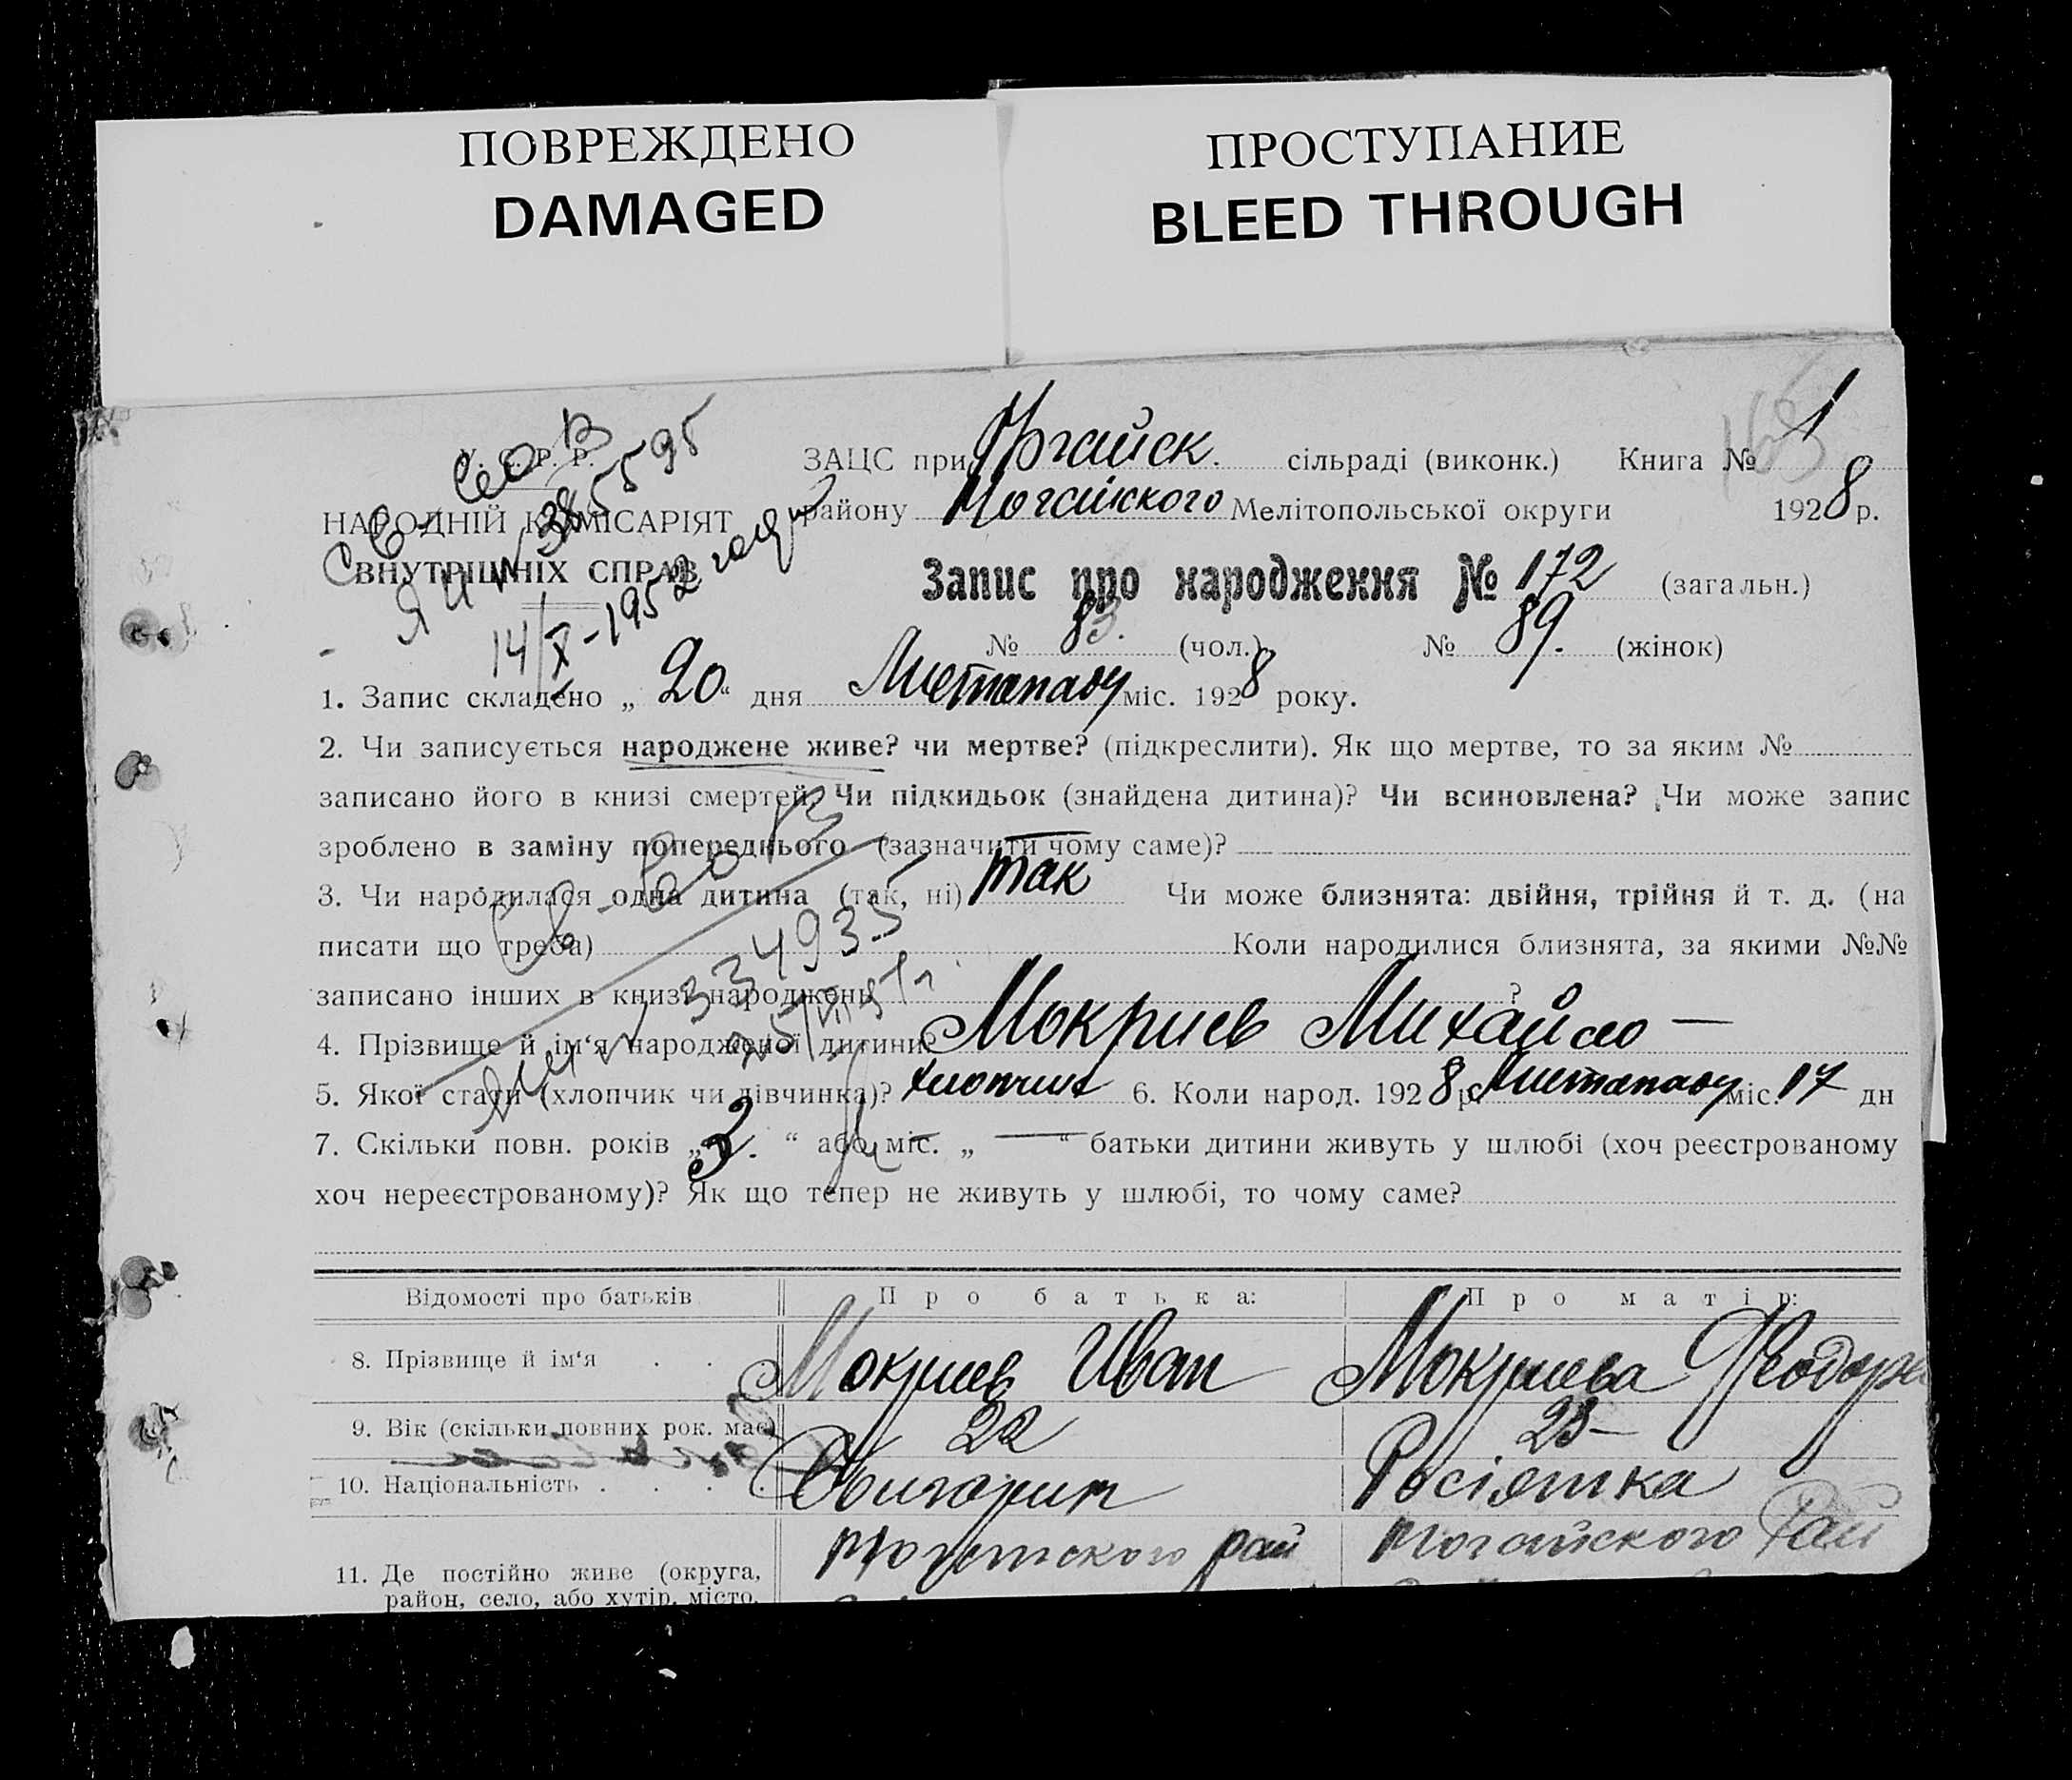 ПОВРЕЖДЕНО
DAMAGED
ПРОСТУПАНИЕ
BLEED THROUGH
У. С. Р. Р.
НАРОДНІЙ КОМІСАРІЯТ
ВНУТРІШНІХ СПРАВ
Св-во
ЯИ № 3855595
14/X-1952 года
ЗАЦС при Ногайск. сільраді (виконк.) Книга № 1
району Ногайского Мелітопольської округи 1928 р.
Запис про народження № 172 (загальн.)
№ 83. (чол.) № 89. (жінок)
1. Запис складено „ 20 “ дня Листопаду міс. 1928 року.
2. Чи записується народжене живе? чи мертве? (підкреслити). Як що мертве, то за яким №
записано його в книзі смертей. Чи підкидьок (знайдена дитина)? Чи всиновлена? Чи може запис
зроблено в заміну попереднього (зазначити чому саме)? —
3. Чи народилася одна дитина (так, ні) так Чи може близнята: двійня, трійня й т. д. (на
писати що треба) Коли народилися близнята, за якими №№
записано інших в книзі народжень ?
Св-во
334935
4. Прізвище й ім‘я народженої дитини? Мокриев Михайло —
5. Якої стати (хлопчик чи дівчинка)? хлопчик 6. Коли народ. 1928 р. Листопаду міс. 17 дн
7. Скільки повн. років „ 2. “ або міс. „ — “ батьки дитини живуть у шлюбі (хоч реєстрованому
хоч нереєстрованому)? Як що тепер не живуть у шлюбі, то чому саме?
Відомості про батьків Про батька: Про матір:
8. Прізвище й ім‘я . . Мокриев Иван Мокриева Феодора
9. Вік (скільки повних рок. має) 22 23 —
10. Національність . . . . Росіянка
Ногайского рай Ногайского Рай
11. Де постійно живе (округа,
район, село, або хутір, місто,